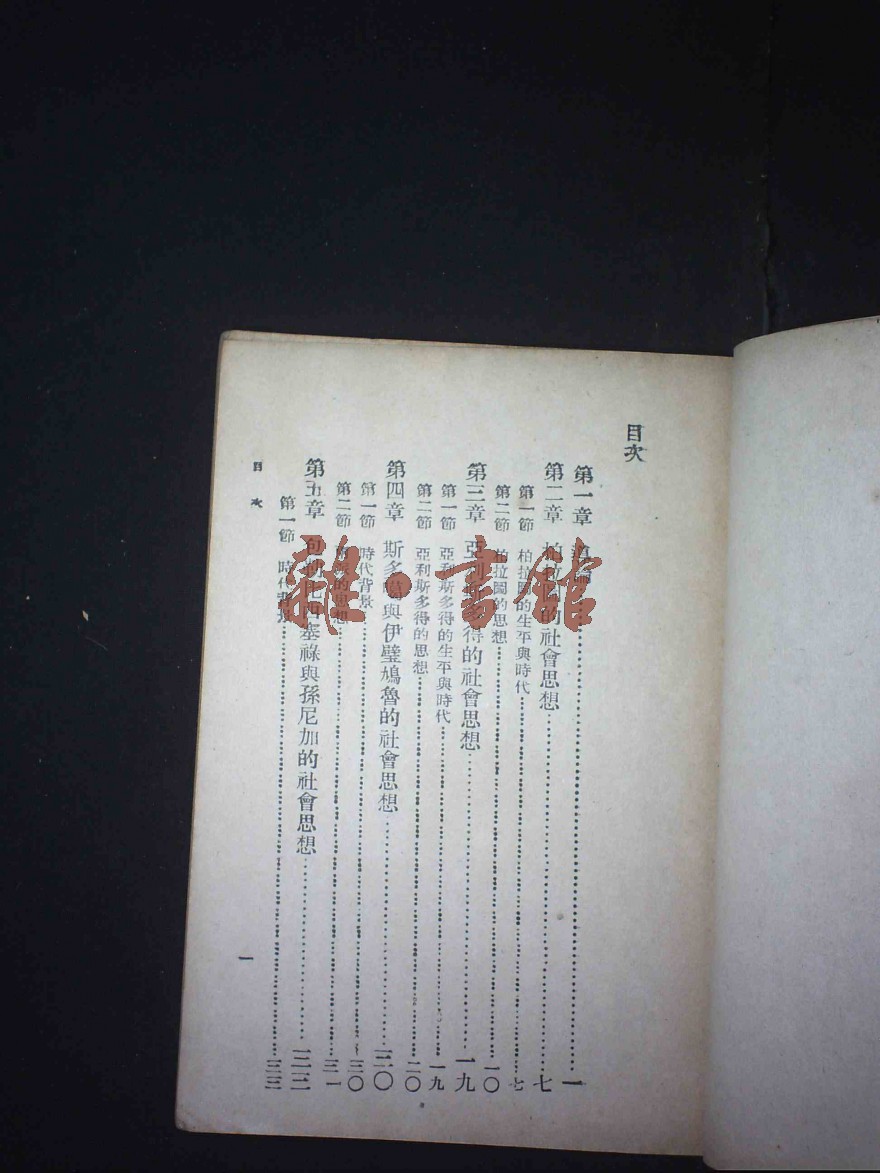 目次
第一章 導論……一
第二章 柏拉圖的社會思想……七
第一節 柏拉圖的生平與時代……七
第二節 柏拉圖的思想……一〇
第三章 亞利斯多得的社會思想……一九
第一節 亞利斯多得的生平與時代……一九
第二節 亞利斯多得的思想……二〇
第四章 斯多噶與伊璧鳩魯的社會思想……三〇
第一節 時代背景……三〇
第二節 的思想……三一
第五章 包利比西塞祿與孫尼加的社會思想……三三
第一節 時代背景……三三
目次 一
雜·書館